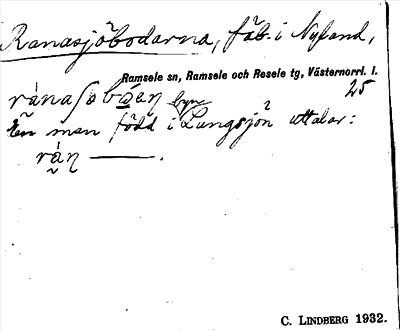 Ranasjöbodarna, fäb. i Nyland,
Ramsele sn, Ramsele och Resele tg, Västernorrl. l.
25
En man född i Lungsjön uttalar:
C. LINDBERG 1932.